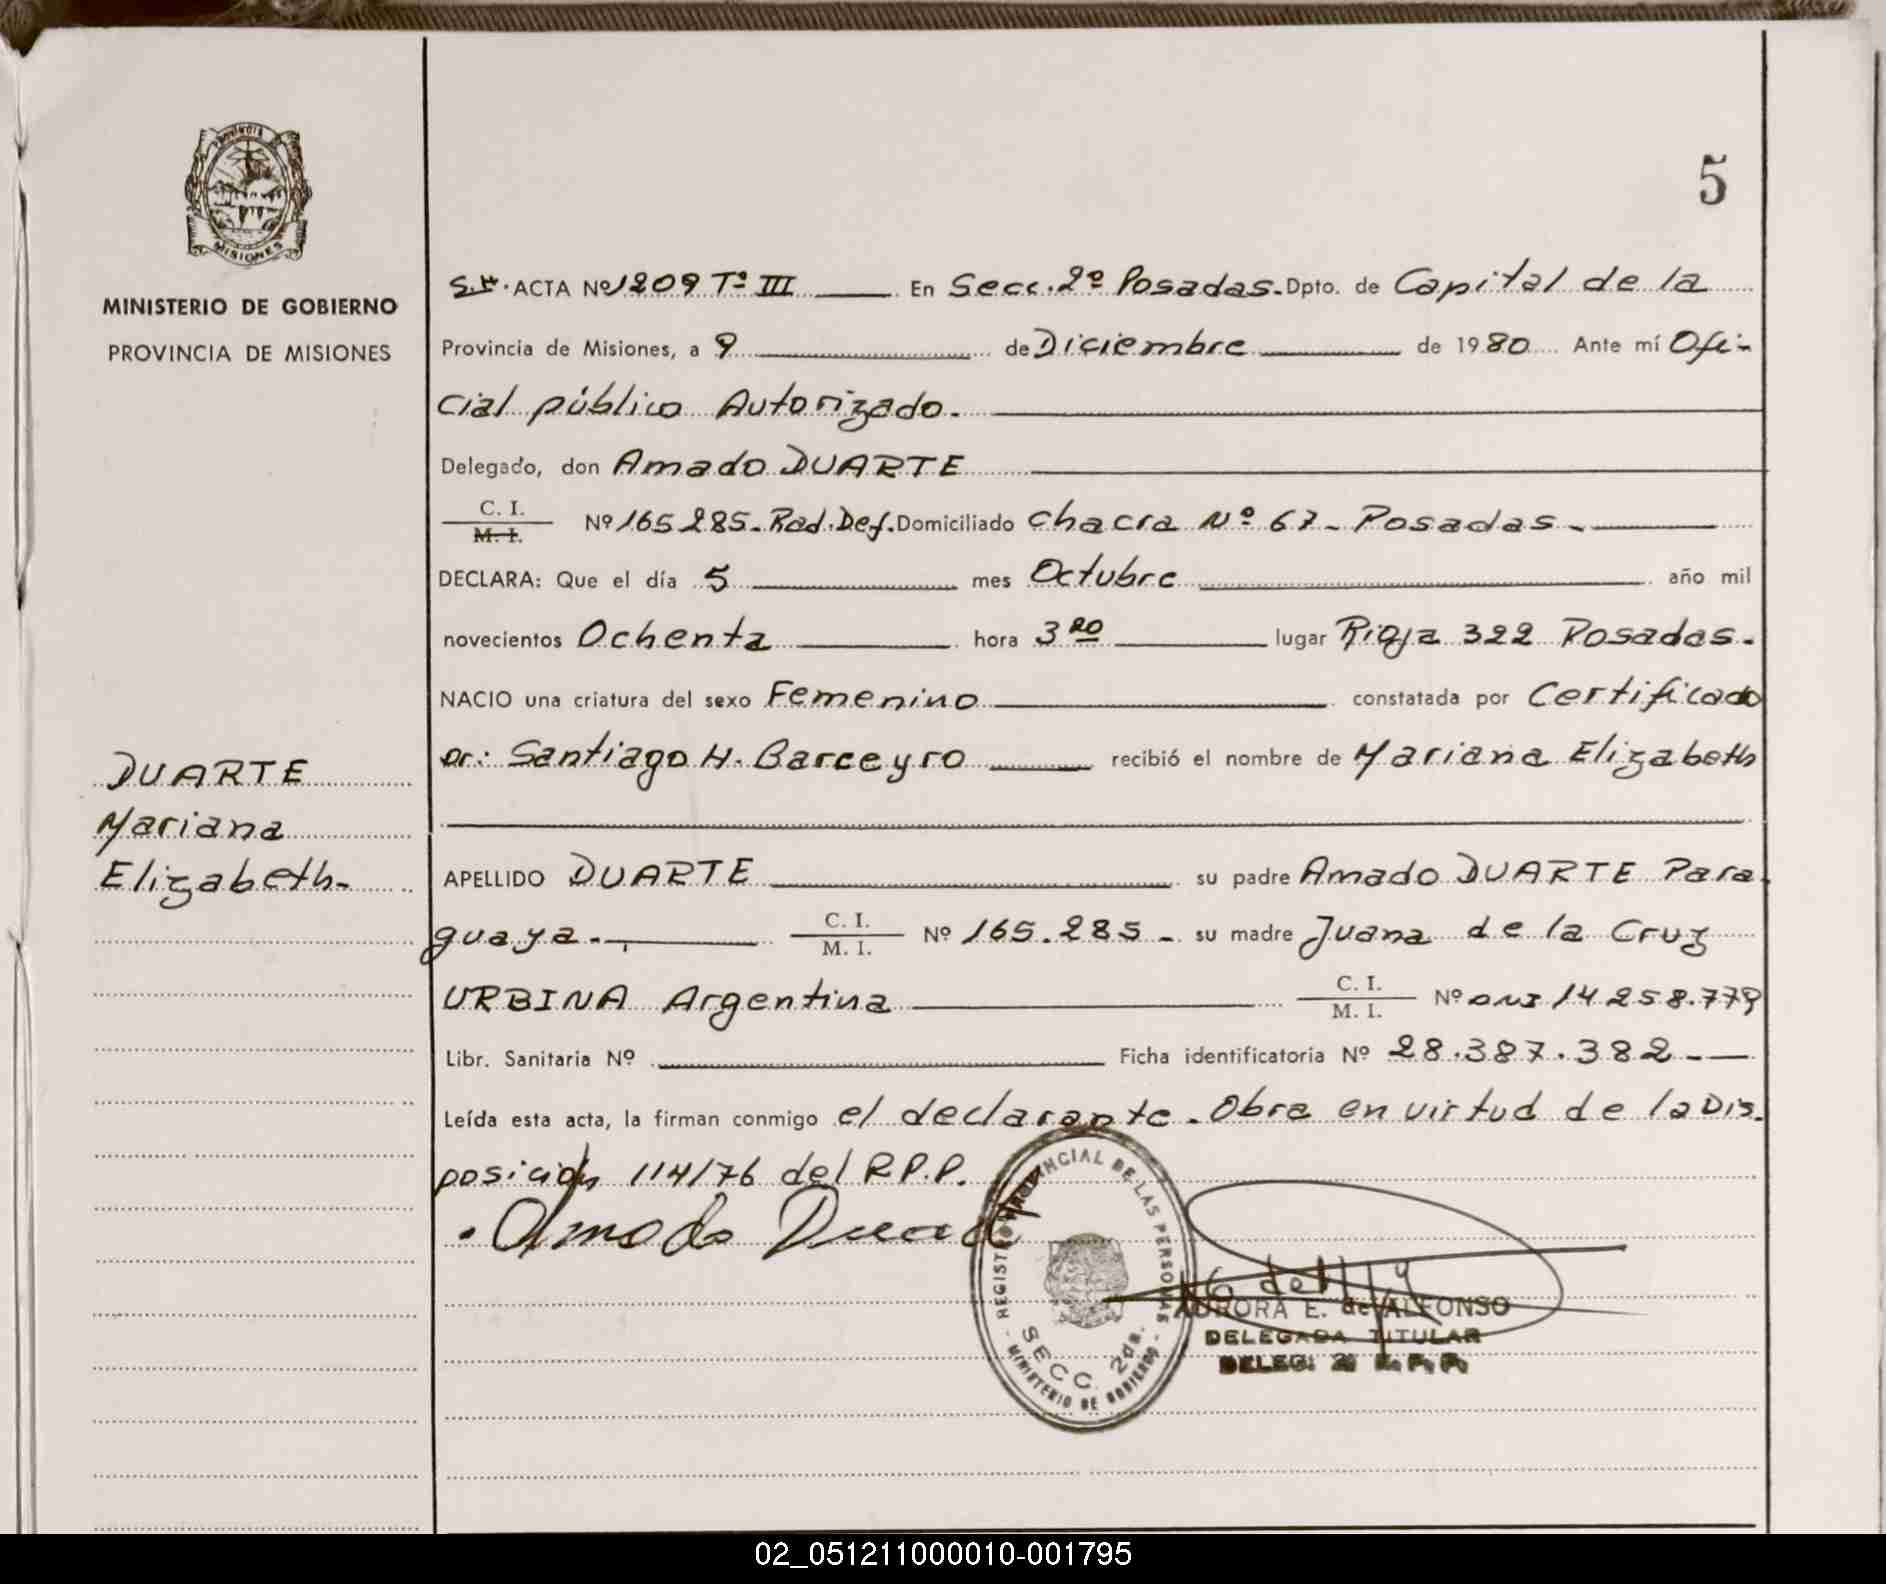 5
PROVINCIA
MISIONES
MINISTERIO DE GOBIERNO
PROVINCIA DE MISIONES
ACTA Nº 1209 Tº III En Secc. 2º Posadas. Dpto. de Capital de la
Provincia de Misiones, a 9 de Diciembre de 1980 Ante mí Ofi-
cial público Autorizado.
Delegado, don Amado DUARTE
C. I.
M. I.
Nº 165.285. Rad. Def. Domiciliado chacra Nº 67 - Posadas -
DECLARA: Que el día 5 mes Octubre año mil
novecientos Ochenta hora 3 20 lugar Rioja 322 Posadas.
NACIO una criatura del sexo Femenino constatada por Certificado
Dr: Santiago H. Barceyro recibió el nombre de Mariana Elizabeth
DUARTE
Mariana
Elizabeth-
APELLIDO DUARTE su padre Amado DUARTE Para
guaya. C. I.
M. I. Nº 165.285 - su madre Juana de la Cruz
URBINA Argentina C. I.
M. I. Nº DNI 14.258.779
Libr. Sanitaria Nº Ficha identificatoria Nº 28.387.382 -
Leída esta acta, la firman conmigo el declarante. Obra en virtud de la Dis.
posición 114/76 del R.P.P.
Amado Duarte
REGISTRO PROVINCIAL DE LAS PERSONAS
SECC. 2da.
MINISTERIO DE GOBIERNO
AURORA E. de ALFONSO
DELEGADA TITULAR
02_051211000010-001795